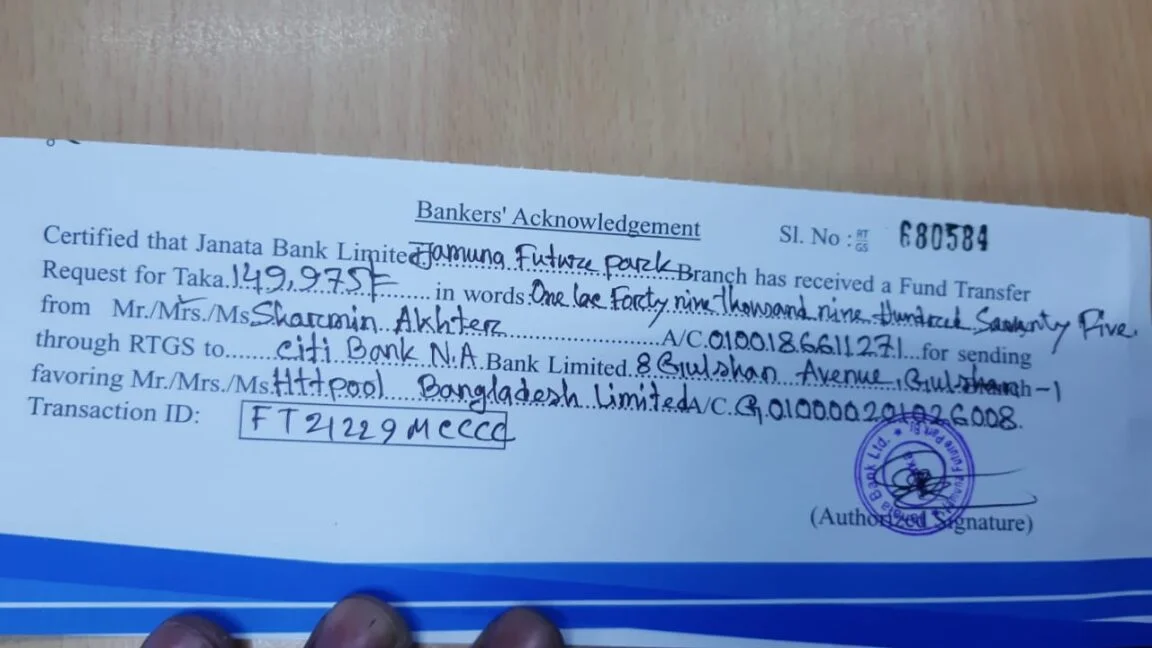 Bankers' Acknowledgement
Sl. No : RTGS 680584
Certified that Janata Bank Limited Jamuna Future park Branch has received a Fund Transfer
Request for Taka 149,975/= in words: One lac Forty nine thousand nine Hundred Seventy Five
from Mr./Mrs./Ms Sharmin Akhter A/C. 0100186611271 for sending
through RTGS to Citi Bank N.A. Bank Limited 8 Gulshan Avenue, Gulshan-1
favoring Mr./Mrs./Ms. Httpool Bangladesh Limited A/C. G 0100000201026008.
Transaction ID: FT21229MCCCC
Janata Bank Ltd.
(Authorized Signature)